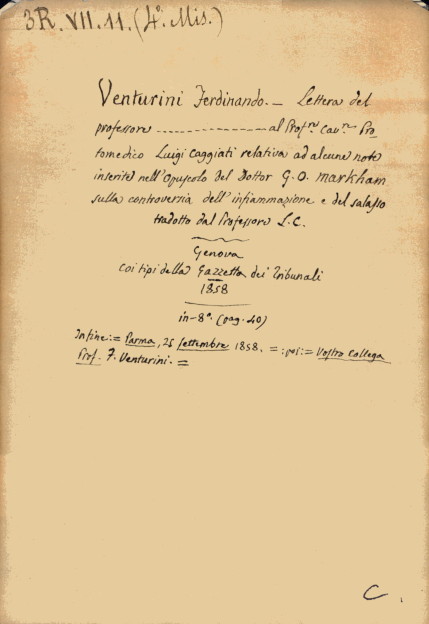 3R.VII.11.(4° Mis.)
Venturini Ferdinando. — Lettera del
professore --------------- al Prof.re Cav.re Pro
tomedico Luigi Caggiati relativa ad alcune note
inserite nell'Opuscolo del Dottor G. O. Markham
sulla controversia dell'infiammazione e del salasso
tradotto dal Professore L. C.
Genova
Coi tipi della Gazzetta dei Tribunali
1858
in-8°. (pag. 40)
Infine:= Parma, 25 Settembre 1858. = :poi:= Vostro Collega
Prof. F. Venturini. =
C.